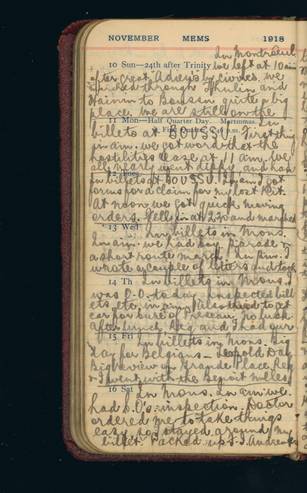 NOVEMBER MEMS 1918
In Montreuil
10 Sun—24th after Trinity we left at 10 am
after great Adieus by civides. we
marched through Thulin and
Hainin to Boussu quite a big
place. we are still on the
11 Mon—Half Quarter Day. Martinmas. In
billets at BOUSSU. First thing
in am. we got word that the
hostilities cease at 11 am. We
all nearly went
12 Tues
in billets at BOUSSU. got
forms for a claim for my lost Kit.
At noon we got quick moving
orders. Fell in at 2,30 and marched
13 Wed In billets in Mons.
In am. we had Bay Parade &
a short route march. In pm. I
wrote a couple of letters and took
14 Th In billets in Mons. I
was O.O. to day. Inspected bill
ets, etc, in am. Also tried to get
car for Cure of no luck
after lunch. Reg and I had our
15 Fri In billets in Mons. Big
day for Belgians - Leopold Day
Big review in Grande Place Reg
& I went with the Benoit
16 Sat In Mons. In am. we
had D.O's inspection. Doctor
ordered me to take things
easy, so stayed around my
billet. Packed up